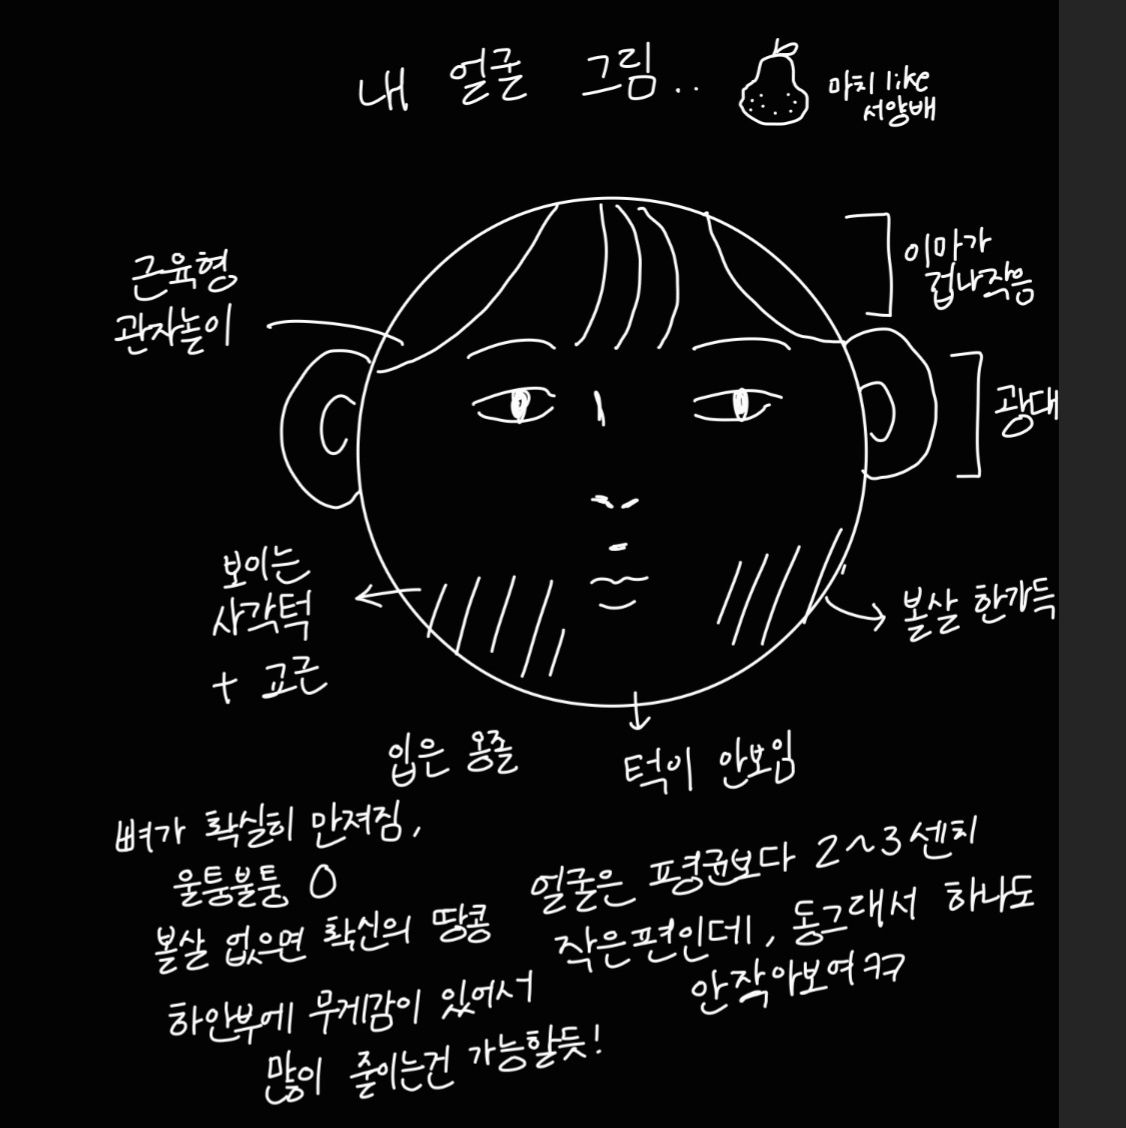 내 얼굴 그림..
마치 like
서양배
이마가
겁나작음
근육형
관자놀이
광대
보이는
사각턱
+ 교근
볼살 한가득
입은 옹졸
턱이 안보임
뼈가 확실히 만져짐,
울퉁불퉁 O
볼살 없으면 확신의 땅콩
하안부에 무게감이 있어서
많이 줄이는건 가능할듯!
얼굴은 평균보다 2~3센치
작은편인데, 동그래서 하나도
안작아보여ㅋㅋ